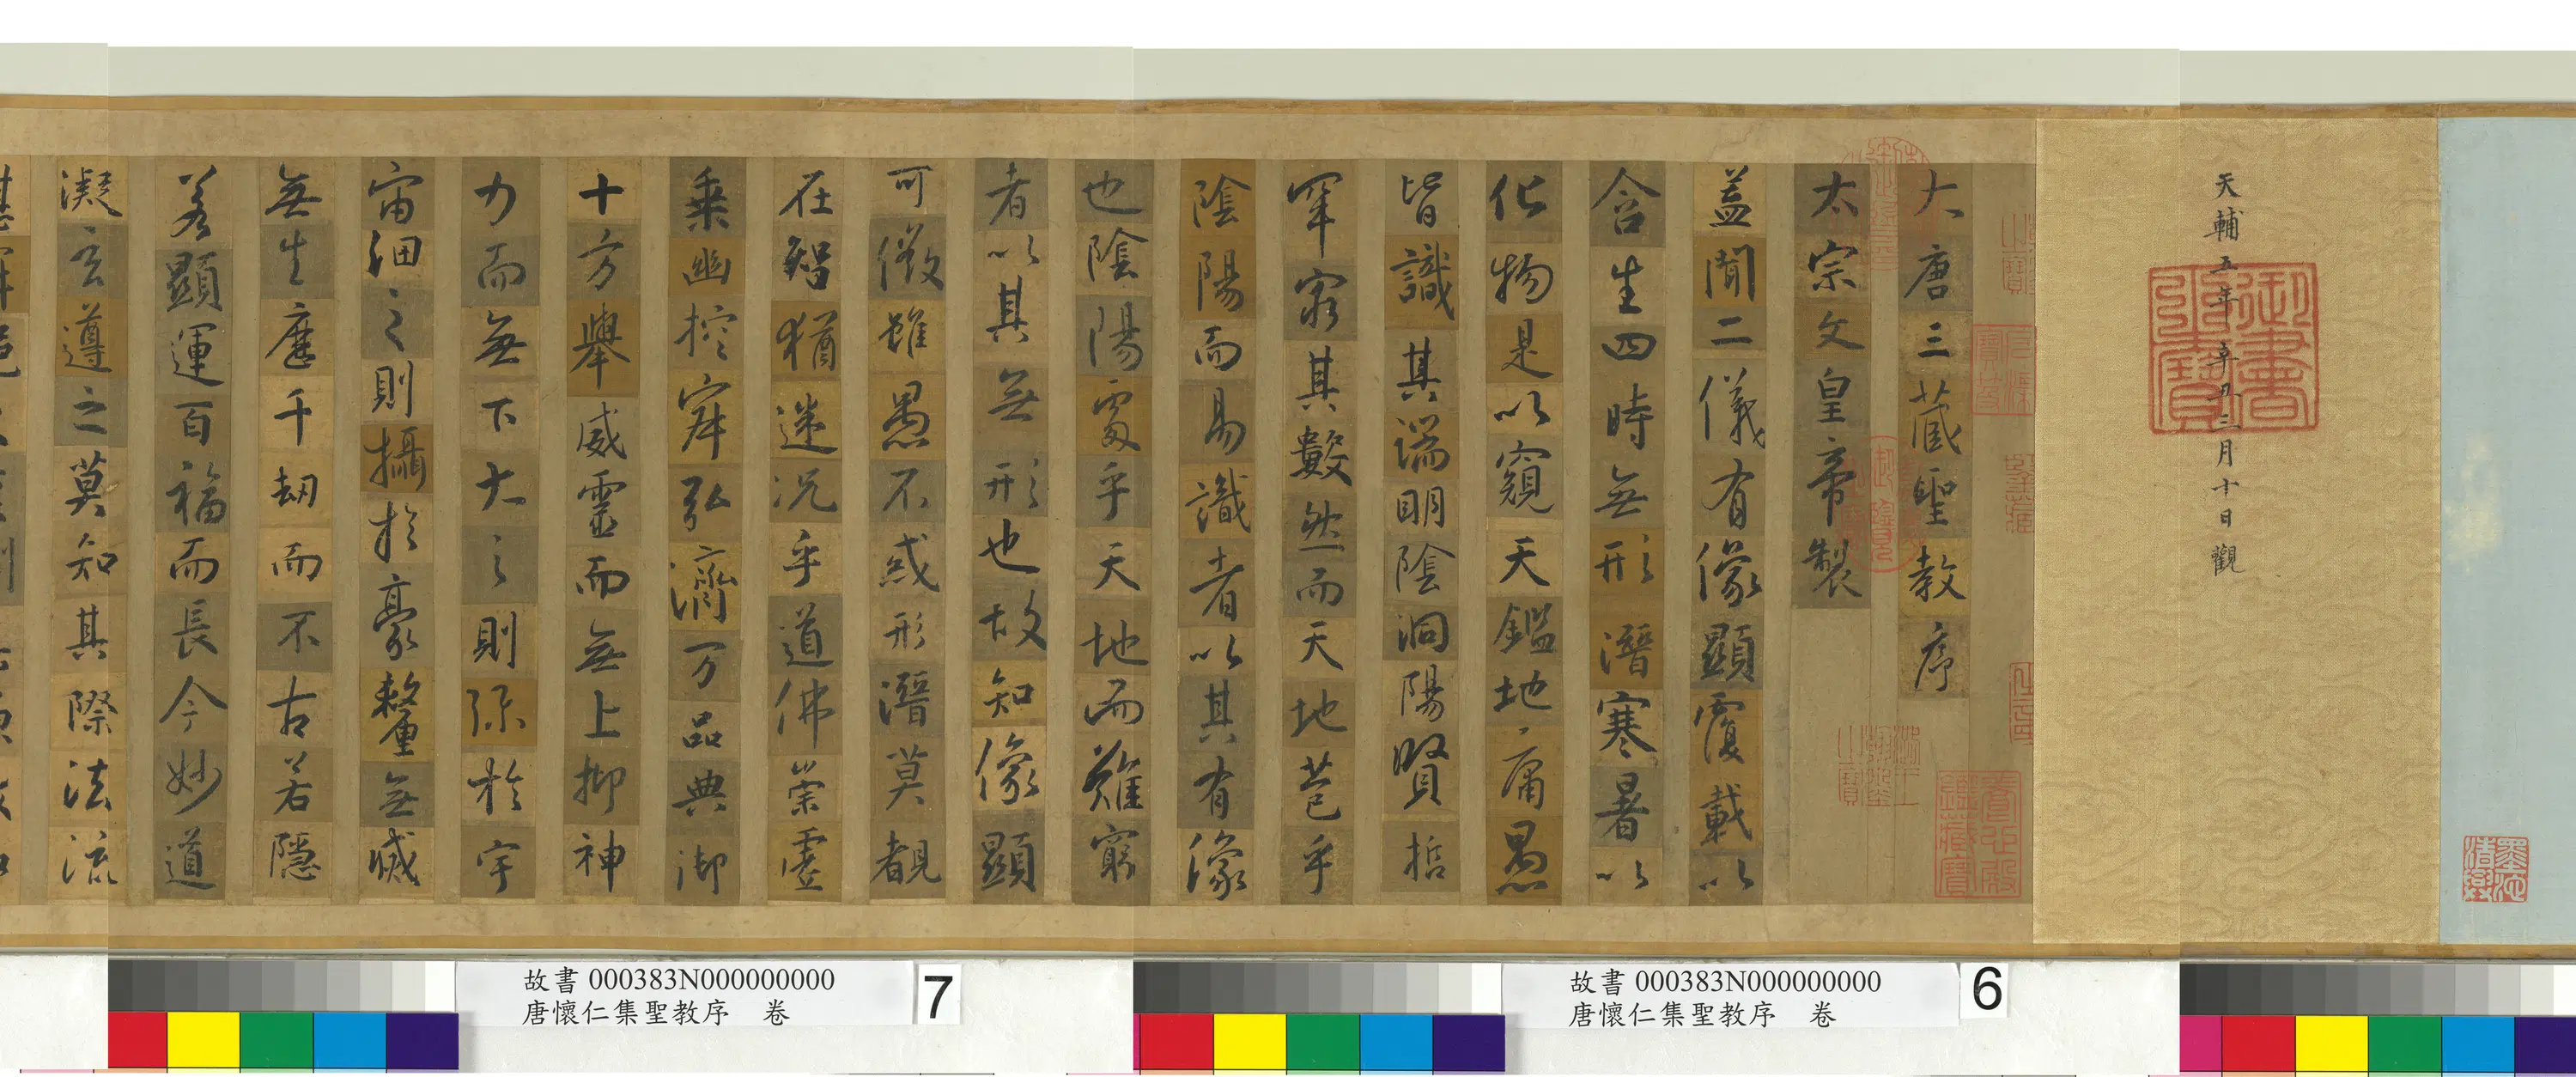 天輔五年辛丑三月十日觀
御書之寶
大唐三藏聖教序
太宗文皇帝製
蓋聞二儀有像顯覆載以
含生四時無形潛寒暑以
化物是以窺天鑑地庸愚
皆識其端明陰洞陽賢哲
罕窮其數然而天地苞乎
陰陽而易識者以其有像
也陰陽處乎天地而難窮
者以其無形也故知像顯
可徵雖愚不惑形潛莫覩
在智猶迷況乎道佛崇虛
乘幽控寂弘濟万品典御
十方舉威靈而無上抑神
力而無下大之則弥於宇
宙細之則攝於豪釐無滅
無生歷千劫而不古若隱
若顯運百福而長今妙道
凝玄遵之莫知其際法流
故書 000383N000000000
唐懷仁集聖教序 卷
6
故書 000383N000000000
唐懷仁集聖教序 卷
7